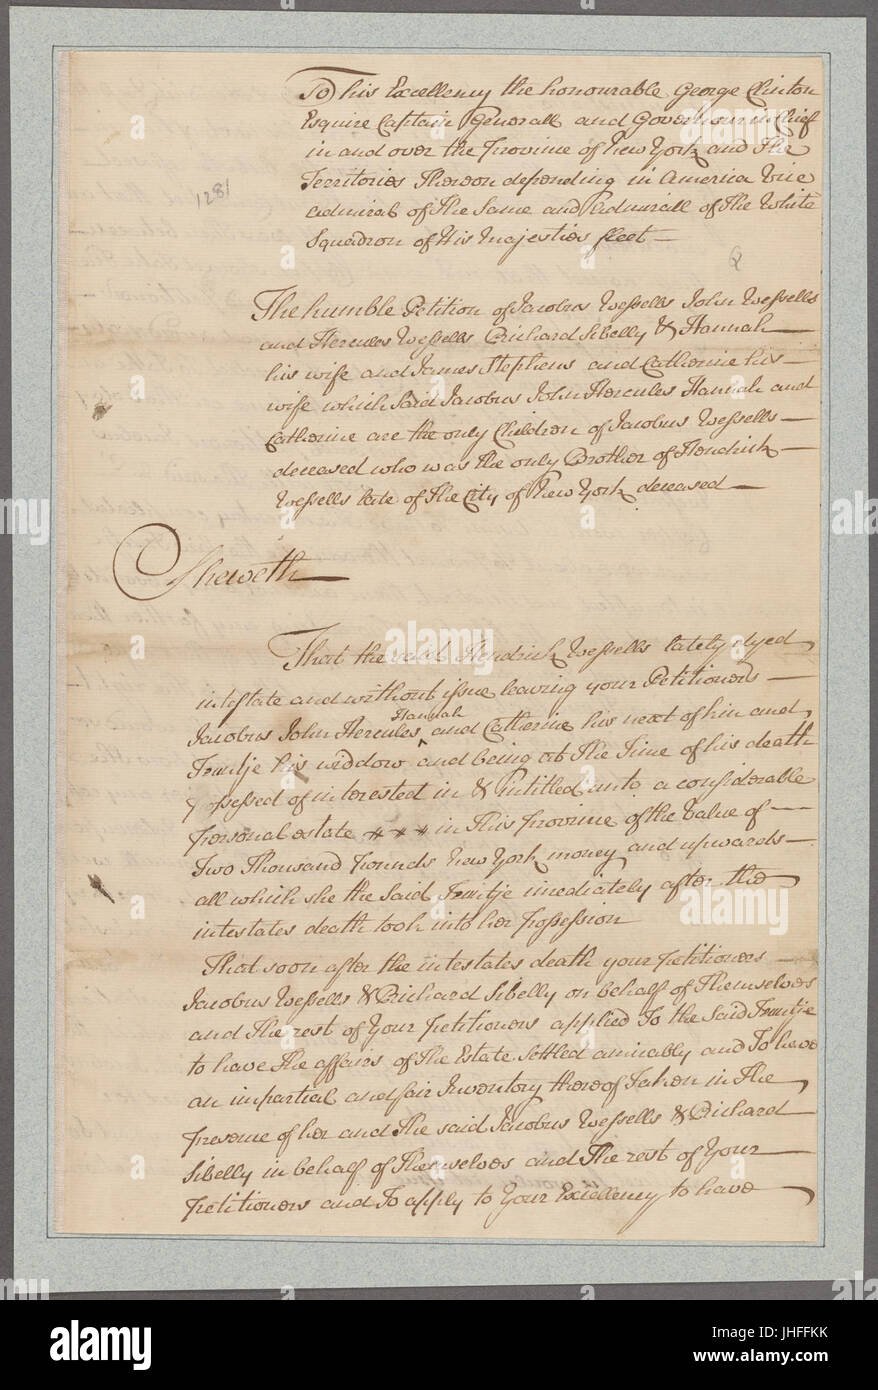 To his Excellency the honourable George Clinton
Esquire Captain Generall and Governour in Chief
in and over the Province of New York and The
Territories Thereon depending in America Vice
Admiral of The Same and Admirall of The White
Squadron of His Majesties fleet —
1281
The humble Petition of Jacobus Wessells John Wessells
and Hercules Wessells Richard Sibelly & Hannah —
his wife and James Stephens and Catherine his —
wife which Said Jacobus John Hercules Hannah and
Catherine are the only Children of Jacobus Wessells —
deceased who was The only Brother of Hendrick —
Wessells late of The City of New York deceased —
Sheweth —
That the said Hendrick Wessells lately dyed
intestate and without issue leaving your Petitioners —
Jacobus John Hercules ^ Hannah and Catherine his next of kin and
Fruitje his widdow and being at The Time of his death
possessed of interested in & Intitled unto a considerable
personal estate in This Province of the Value of —
Two Thousand Pounds New York money and upwards —
all which she the Said Fruitje imediately after the
intestates death took into her possession
That soon after the intestates death your Petitioners —
Jacobus Wessells & Richard Sibelly on behalf of Themselves
and The rest of Your Petitioners applied To the Said Fruitje
to have The affairs of The Estate settled amicably and To have
an impartial and fair Inventory thereof Taken in The
presence of her and The said Jacobus Wessells & Richard
Sibelly in behalf of Themselves and The rest of Your —
Petitioners and To apply to Your Excellency to have
alamy stock photo
JHFFKK
www.alamy.com